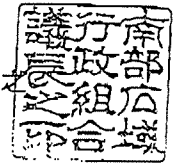 南部広域
行政組合
議長之印